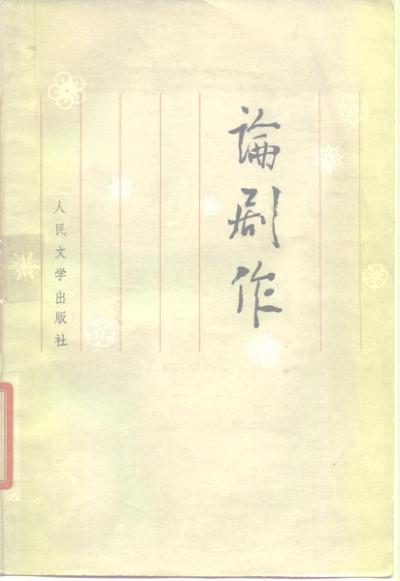 論剧作
人民文学出版社